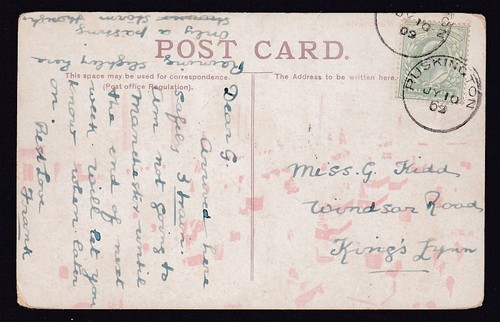 POST CARD.
This space may be used for correspondence.
(Post office Regulation).
The Address to be written here.
RUSKINGTON
JY 10
09
JY 10
09
Miss. G. Kidd
Windsor Road
King's Lynn
Dear G.
Arrived here
safely 3 train.
am not going to
Manchester until
the end of next
week will let you
know when later
on.
Best Love
Frank
Raining slightly here
only a passing
storm though